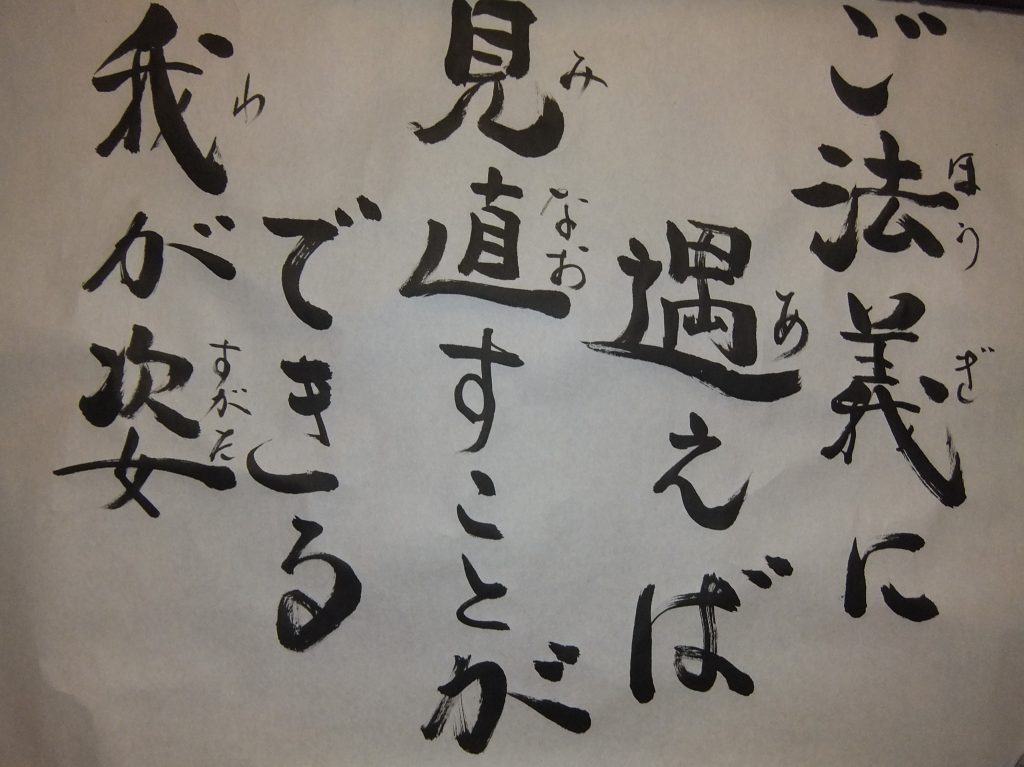 ご法義に
遇えば
見直すことが
できる
我が姿
ほう
ぎ
あ
み
なお
わ
すがた